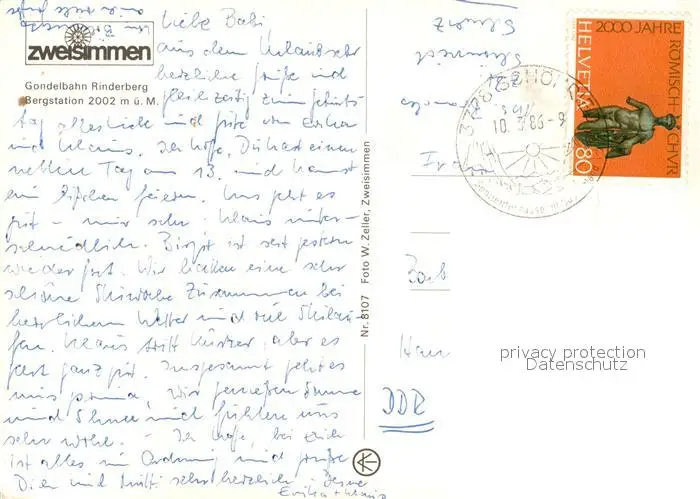 zweisimmen
Gondelbahn Rinderberg
Bergstation 2002 m ü. M.
Liebe Babi
aus dem Skiurlaub sehr
herzliche Grüße und
gleichzeitig zum Geburts-
tag alles Liebe und Gute von Evilia
und Klaus. Ich hoffe, Du hast einen
netten Tag am 13. und kannst
ein bißchen feiern. Uns geht es
gut - mir sehr, Klaus unter-
schiedlich. Birgit ist seit gestern
wieder fort. Wir hatten eine sehr
schöne Skiwoche zusammen bei
herrlichem Wetter und viel Skilau-
fen. Klaus tritt kürzer, aber es
geht ganz gut. Insgesamt geht es
uns prima, wir genießen Sonne
und Schnee und fühlen uns
sehr wohl. - Ich hoffe, bei Euch
ist alles in Ordnung und grüße
Dich und Mutti sehr herzlich, Deine
Evilia + Klaus
Nr. 8107 Foto W. Zeller, Zweisimmen
Schweiz
10. 3.86 - 9
HELVETIA 80
2000 JAHRE
RÖMISCH CHUR
DDR
privacy protection
Datenschutz